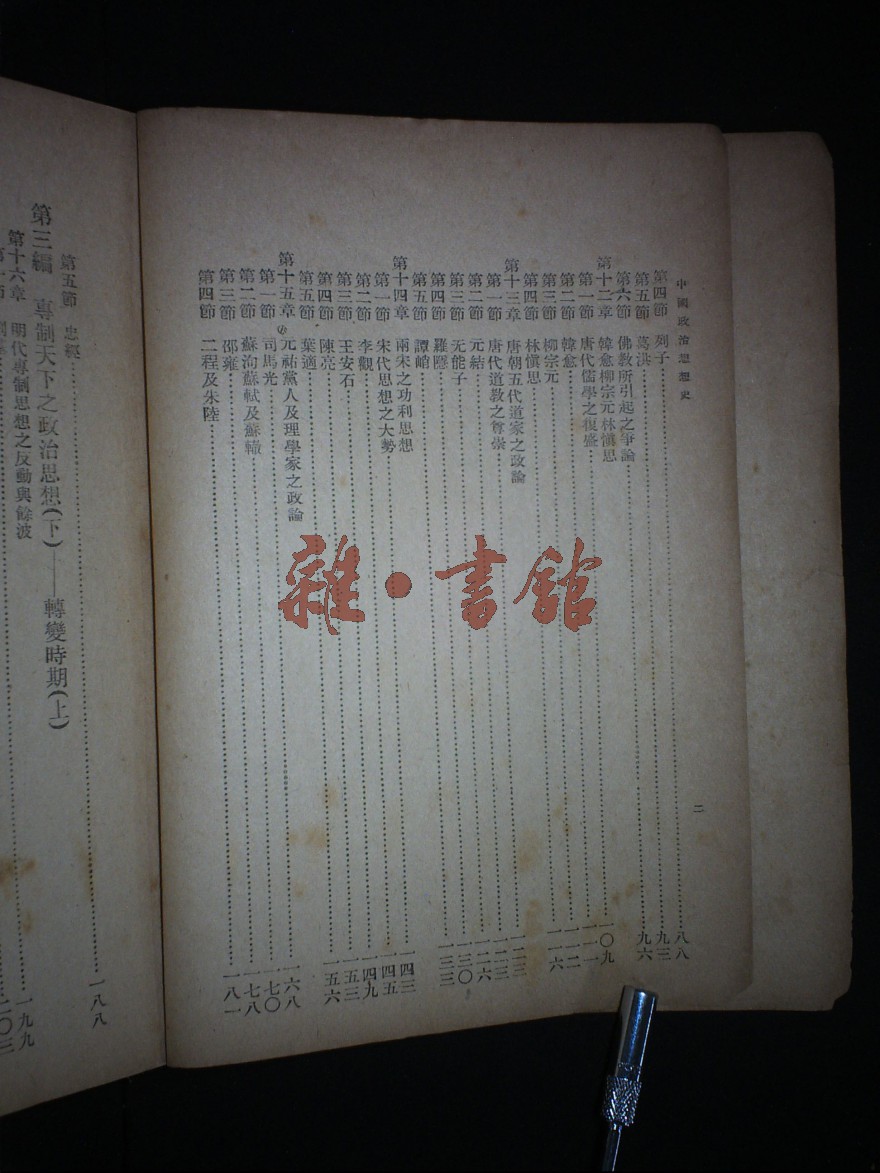 中國政治思想史
二
第四節 列子……八八
第五節 葛洪……九三
第六節 佛教所引起之爭論……九六
第十二章 韓愈柳宗元林慎思
第一節 唐代儒學之復盛……一〇九
第二節 韓愈……一一一
第三節 柳宗元……一一二
第四節 林慎思……一一六
第十三章 唐朝五代道家之政論
第一節 唐代道教之尊崇……一二三
第二節 元結……一二三
第三節 无能子……一二六
第四節 羅隱……一三〇
第五節 譚峭……一三三
第十四章 兩宋之功利思想
第一節 宋代思想之大勢……一四三
第二節 李覯……一四五
第三節 王安石……一四九
第四節 陳亮……一五三
第五節 葉適……一五六
第十五章 元祐黨人及理學家之政論
第一節 司馬光……一六八
第二節 蘇洵蘇軾及蘇轍……一七〇
第三節 邵雍……一七八
第四節 二程及朱陸……一八一
第五節 忠經……一八八
第三編 專制天下之政治思想(下)——轉變時期(上)
第十六章 明代專制思想之反動與餘波
第一節……一九九
二〇三
雜·書館